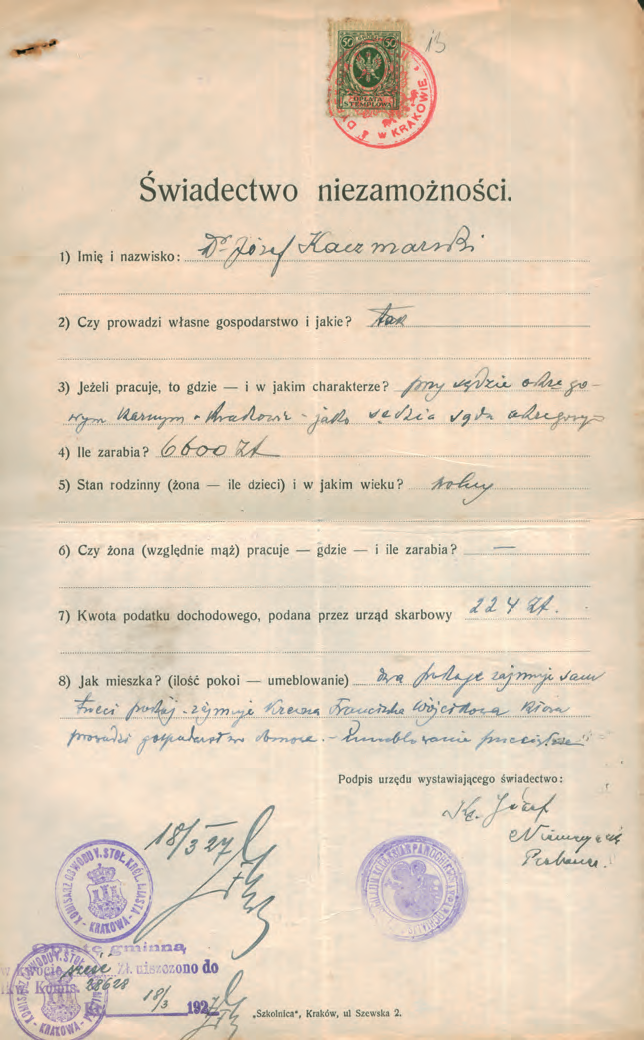 50 50
OPŁATA
STEMPLOWA
W KRAKOWIE
13
Świadectwo niezamożności.
1) Imię i nazwisko: Dr Józef Kaczmarski
2) Czy prowadzi własne gospodarstwo i jakie? tak
3) Jeżeli pracuje, to gdzie — i w jakim charakterze? przy sądzie okręgo-
wym karnym w Krakowie - jako sędzia sądu okręgowego
4) Ile zarabia? 6600 Zł
5) Stan rodzinny (żona — ile dzieci) i w jakim wieku? wolny
6) Czy żona (względnie mąż) pracuje — gdzie — i ile zarabia? —
7) Kwota podatku dochodowego, podana przez urząd skarbowy 224 Zł.
8) Jak mieszka? (ilość pokoi — umeblowanie) dwa pokoje zajmuje sam
trzeci pokój zajmuje Franciszka Wójcikowa która
prowadzi gospodarstwo domowe. - Umeblowanie
Podpis urzędu wystawiającego świadectwo:
Ks. Józef
18/3 27
KOMISARZ OBWODU V. STOŁ. KRÓL. MIASTA
KRAKOWA
Opłatę gminną
w kwocie sześć Zł. uiszczono do
Komis. 28628
18/3 1927
KOMISARZ OBWODU V. STOŁ.
KRAKOWA
„Szkolnica“, Kraków, ul Szewska 2.